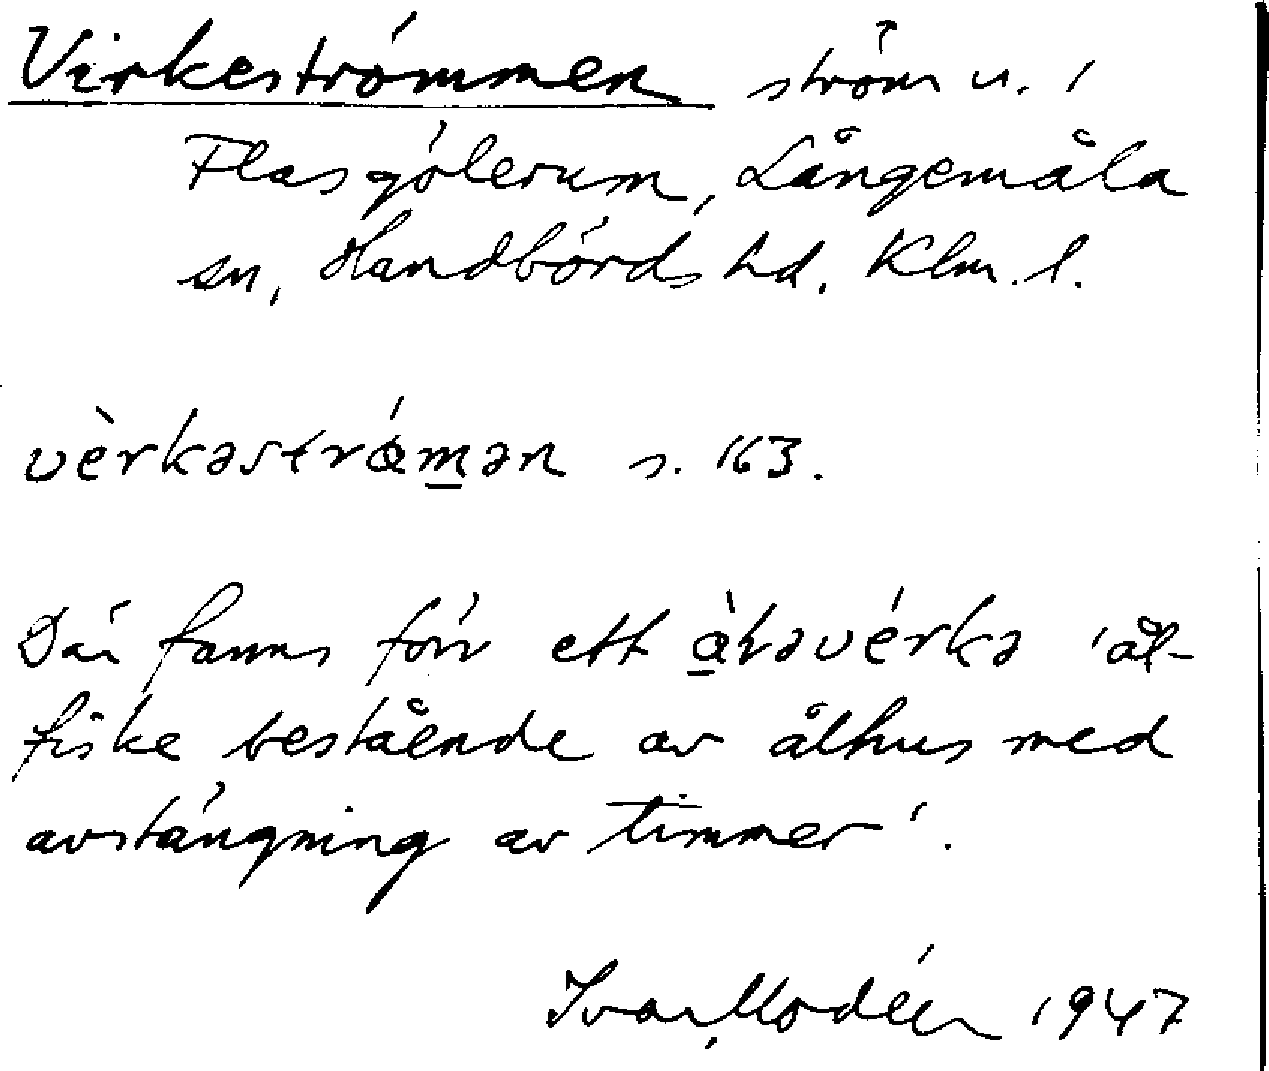 Virkeströmmen ström n. i
Flasgölerum, Långemåla
sn, Handbörds hd. Klm. l.
vèrkəstrǿmən s. 163.
Där fanns förr ett ål-
fiske bestående av ålhus med
avstängning av timmer'.
Ivar Modéer 1947